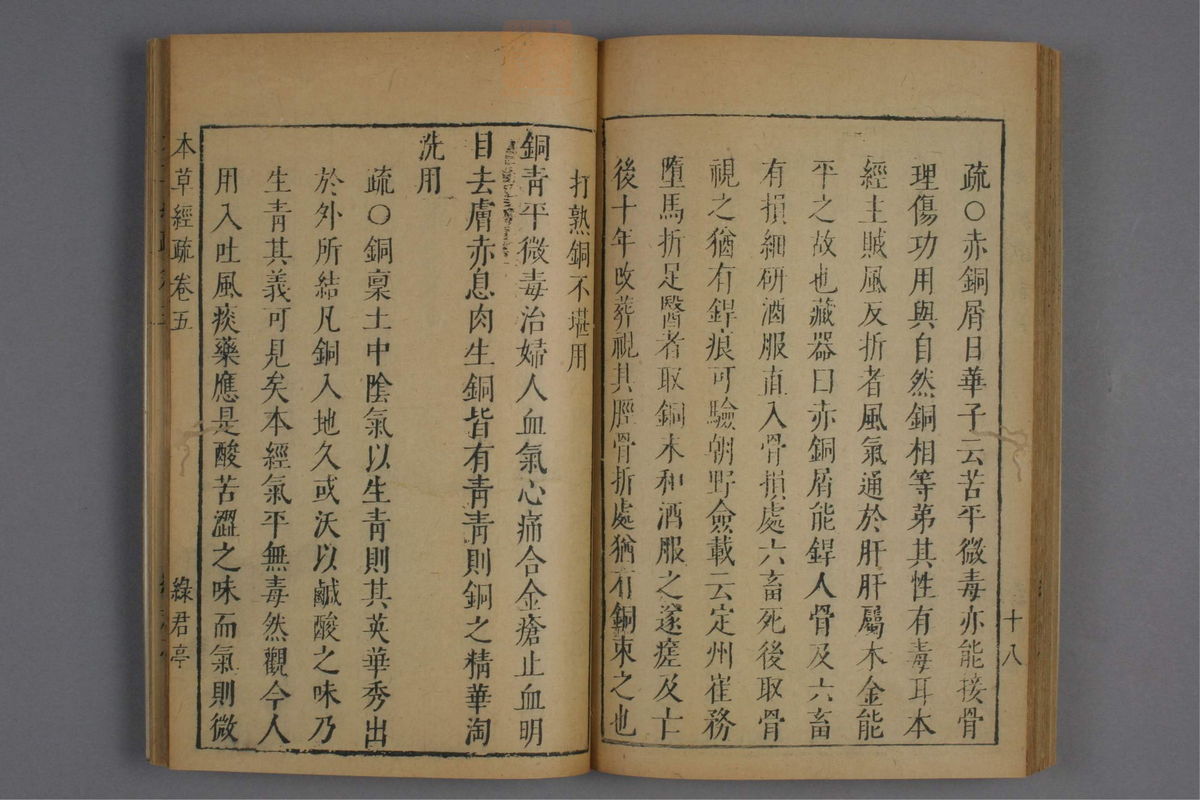 十八
疏○赤銅屑日華子云苦平微毒亦能接骨
理傷功用與自然銅相等第其性有毒耳本
經主賊風反折者風氣通於肝肝屬木金能
平之故也藏器曰赤銅屑能銲人骨及六畜
有損細研酒服直入骨損處六畜死後取骨
視之猶有銲痕可驗朝野僉載云定州崔務
墮馬折足醫者取銅末和酒服之遂瘥及亡
後十年改葬視其脛骨折處猶有銅束之也
打熟銅不堪用
銅青平微毒治婦人血氣心痛合金瘡止血明
目去膚赤息肉生銅皆有青青則銅之精華淘
洗用
疏○銅稟土中陰氣以生青則其英華秀出
於外所結凡銅入地久或沃以鹹酸之味乃
生青其義可見矣本經氣平無毒然觀今人
用入吐風痰藥應是酸苦澀之味而氣則微
本草經疏卷五
綠君亭